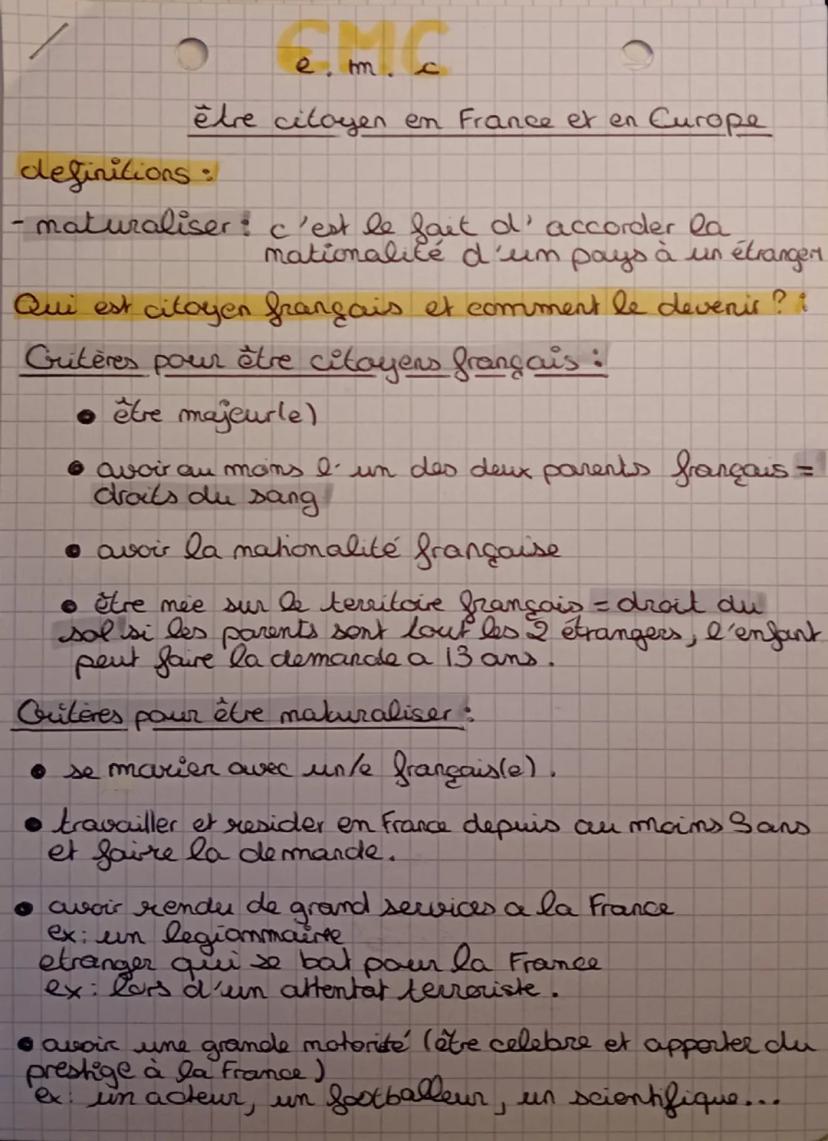 EMC
e.m.c
être citoyen en France et en Europe
definitions :
- naturaliser : c'est le fait d'accorder la
nationalité d'un pays à un étranger
Qui est citoyen français et comment le devenir ? :
Critères pour être citoyens français :
• être majeur(e)
• avoir au moins l'un des deux parents français =
droits du sang
• avoir la nationalité française
• être née sur le territoire français = droit du
sol si les parents sont tout les 2 étrangers, l'enfant
peut faire la demande a 13 ans.
Critères pour être naturaliser :
• se marier avec un/e français(e).
• travailler et resider en France depuis au moins ans
et faire la demande.
• avoir rendu de grand services a la France
ex : un legionnaire
etranger qui se bat pour la France
ex : lors d'un attentat terroriste.
• avoir une grande notorité (être celebre et apporter du
prestige à la France)
ex : un acteur, un footballeur, un scientifique...